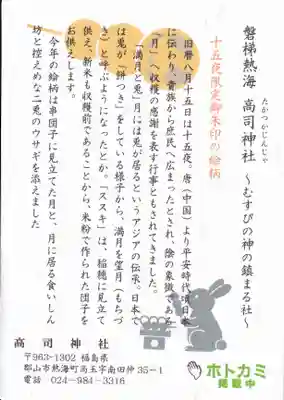 磐梯熱海 高司神社 ~むすびの神の鎮まる社~
たかつかじんじゃ
十五夜限定御朱印の絵柄
旧暦八月十五日は十五夜。唐(中国)より平安時代頃日本
に伝わり、貴族から庶民へ広まったとされ、陰の象徴である
「月」へ収穫の感謝を表す行事ともされてきました。
「満月と兎」月には兎が居るというアジアの伝承。日本で
は兎が「餅つき」をしている様子から、満月を望月(もちづ
き)と呼ぶようになったとか。「ススキ」は、稲穂に見立て
供え、新米も収穫前であることから、米粉で作られた団子を
お供えします。
今年の絵柄は串団子に見立てた月と、月に居る食いしん
坊と控えめな二兎のウサギを添えました
高司神社
〒963-1302 福島県
郡山市熱海町高玉字南田仲35-1
電話 024-984-3316
ホトカミ
掲載中